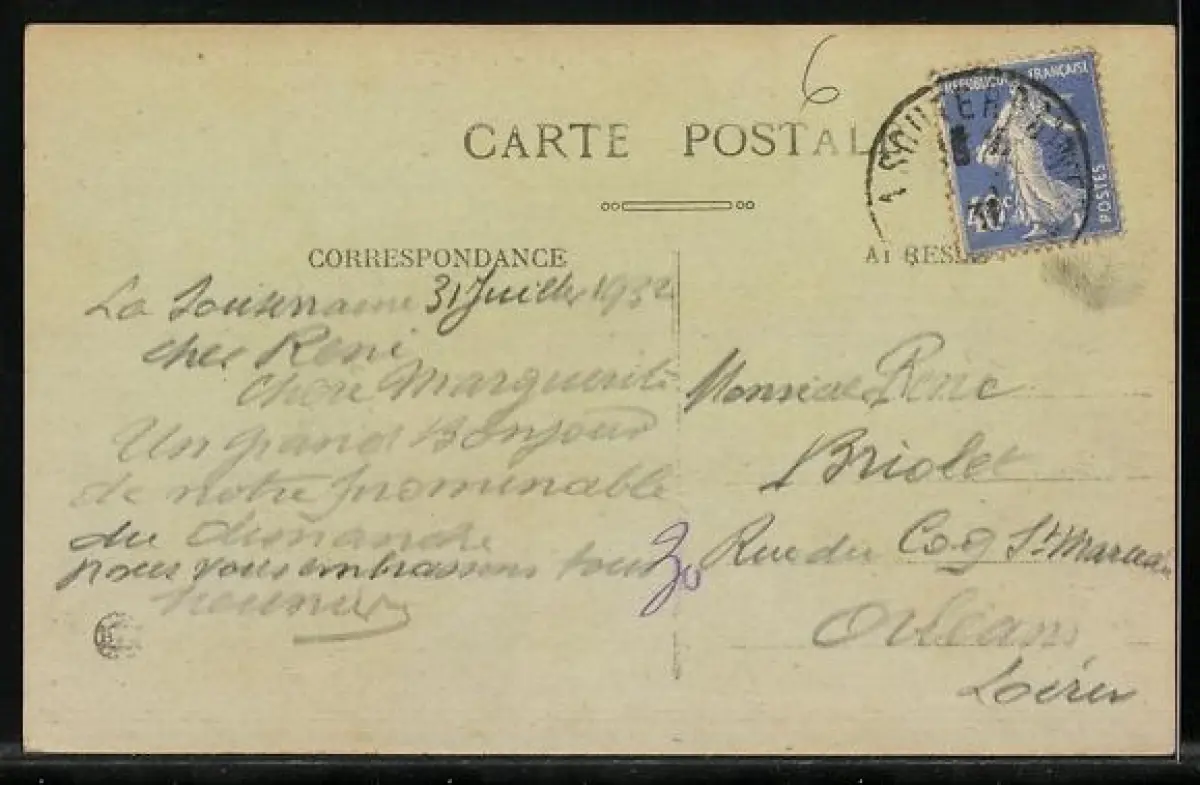 6
CARTE POSTAL
REPUBLIQUE FRANÇAISE
POSTES
40c
LA SOUTERRAINE
31
CORRESPONDANCE
La Souterraine 31 Juillet 1932
cher René
cherie Marguerite
Un grand Bonjour
de notre
du dimanche
nous vous embrassons tous
30
Monsieur René
Briolet
Rue du Coq St Marceau
Orléans
Loiret